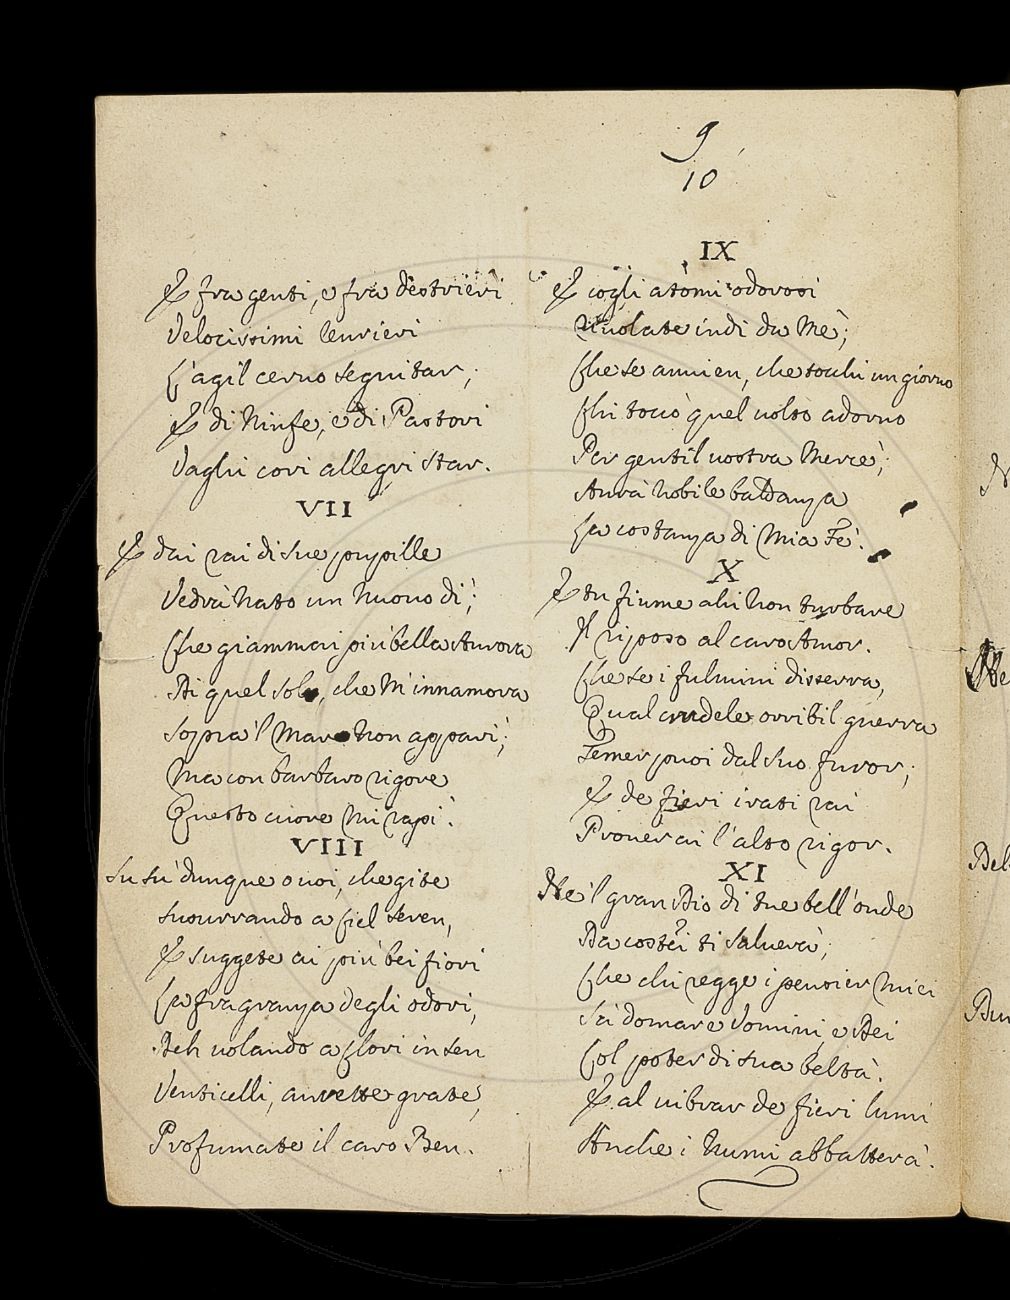 9
10
E fra genti, e fra destrieri
Velocissimi levrieri
L'agil cervo seguitar;
E di Ninfe, e di Pastori
Vaghi cori allegri star.
VII
E dai rai di sue pupille
Vedrà nato un nuovo dì;
Che giammai più bella Aurora
Di quel sol, che m'innamora
Sopra 'l mare non apparì;
Ma con barbaro rigore
Questo cuore mi rapì.
VIII
Su sù dunque o voi, che gite
Susurrando a Ciel seren,
E suggete ai più bei fiori
La fraganza degli odori,
Deh volando a Clori in sen
Venticelli, aurette grate,
Profumate il caro Ben.
IX
E cogli atomi odorosi
Rivolate indi da Me;
Che se avvien, che tochi un giorno
Chi toccò quel volto adorno
Per gentil vostra Mercè;
Avrà nobile baldanza
La costanza di Mia Fè.
X
E tu fiume ahi non turbare
Il riposo al caro Amor.
Che se i fulmini disserra,
Qual crudele orribil guerra
Temer puoi dal suo furor;
E de fieri irati rai
Proverai l'alto rigor.
XI
Ne 'l gran Dio di tue bell'onde
Da costei ti salverà;
Che chi regge i pensier miei
Sà domare Vomini e Dei
Col poter di sua beltà.
E al vibrar de fieri lumi
Anche i Numi abbatterà.
Ne
Bel